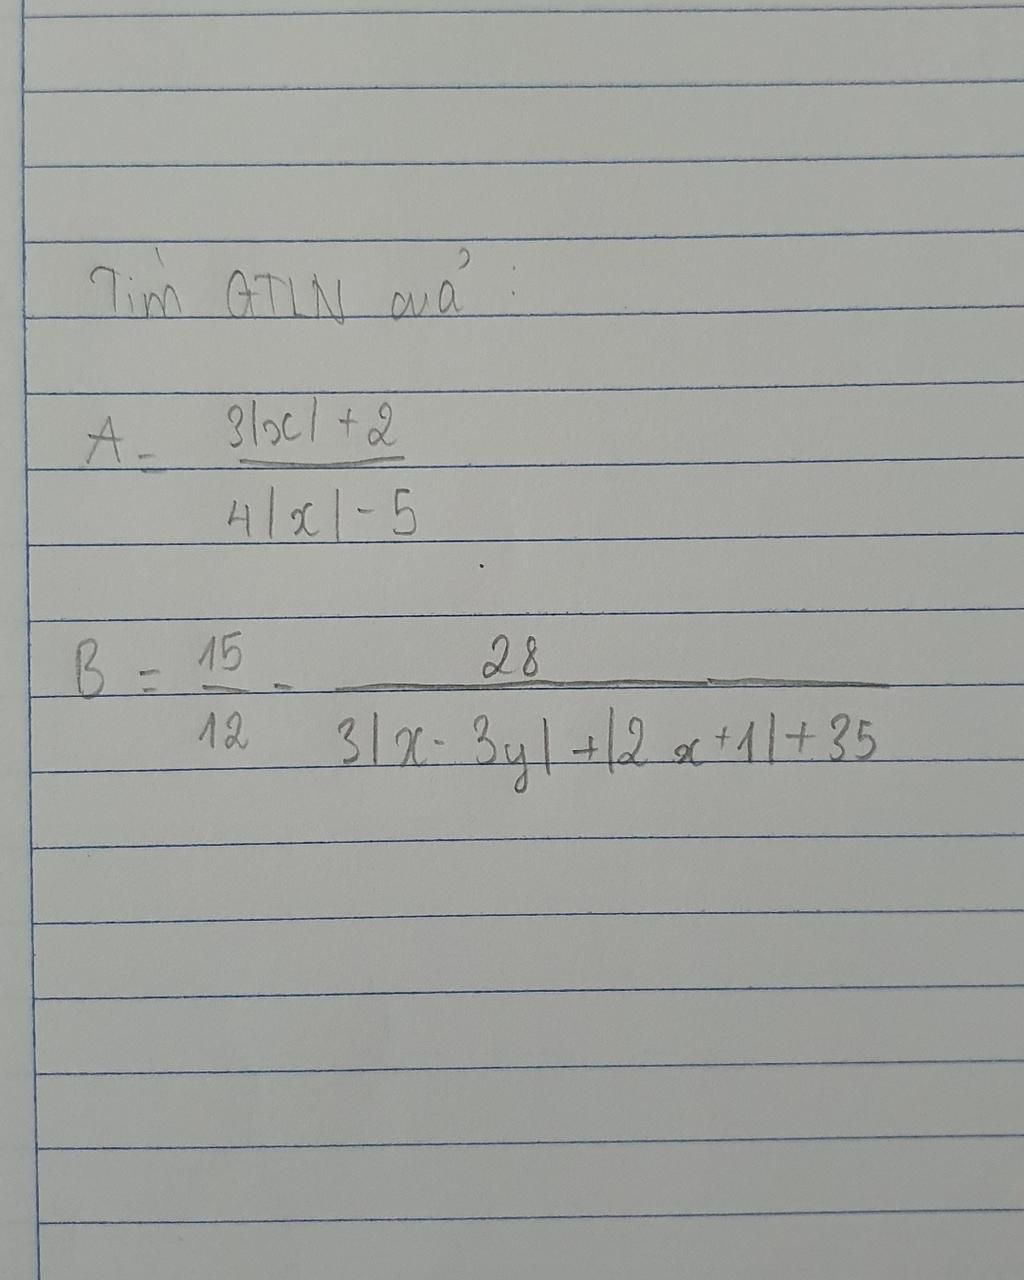 Tìm GTLN củả :
A = 3|x| + 2 / 4|x| - 5
B = 15/12 - 28 / 3|x - 3y| + |2x + 1| + 35